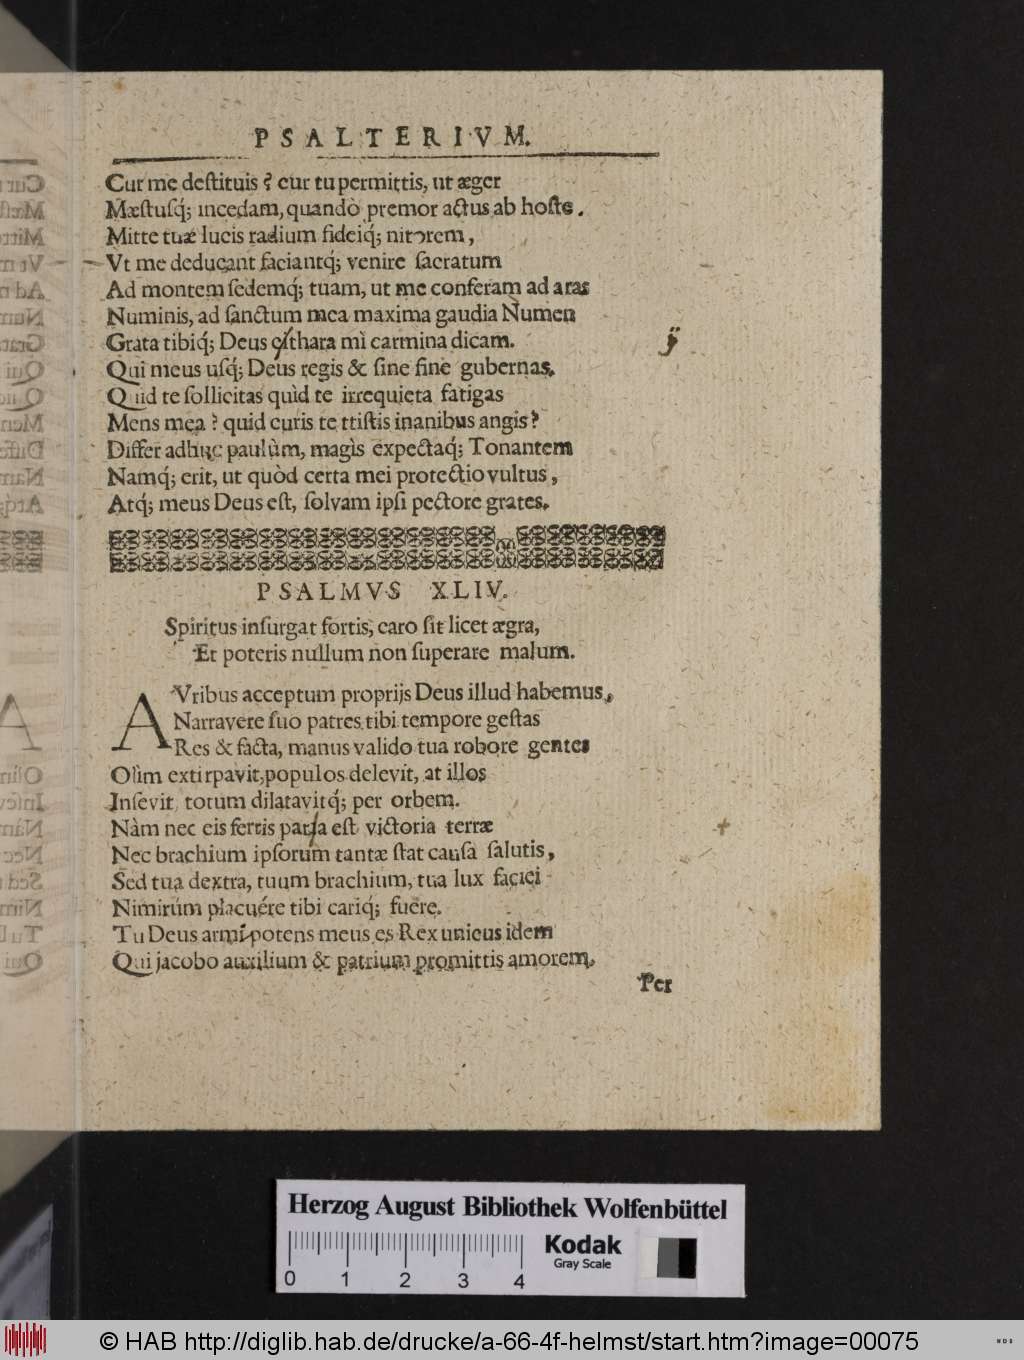 PSALTERIVM.
Cur me destituis? cur tu permittis, ut æger
Mæstusq́; incedam, quandò premor actus ab hoste.
Mitte tuæ lucis radium fideiq́; nitorem,
Vt me deducant faciantq́; venire sacratum
Ad montem sedemq́; tuam, ut me conferam ad aras
Numinis, ad sanctum mea maxima gaudia Numen
Grata tibiq́; Deus cithara mì carmina dicam.
Qui meus usq́; Deus regis & sine fine gubernas.
Quid te sollicitas quìd te irrequieta fatigas
Mens mea? quid curis te ttistis inanibus angis?
Differ adhuc paulùm, magìs expectaq́; Tonantem
Namq́; erit, ut quòd certa mei protectio vultus,
Atq́; meus Deus est, solvam ipsi pectore grates.
PSALMVS XLIV.
Spiritus insurgat fortis, caro sit licet ægra,
Et poteris nullum non superare malum.
AVribus acceptum proprijs Deus illud habemus,
Narravere suo patres tibi tempore gestas
Res & facta, manus valido tua robore gentes
Olìm extirpavit, populos delevit, at illos
Insevit totum dilatavitq́; per orbem.
Nàm nec eis ferris parta est victoria terræ
Nec brachium ipsorum tantæ stat causa salutis,
Sed tua dextra, tuum brachium, tua lux faciei
Nimirùm placuére tibi cariq́; fuêre.
Tu Deus armipotens meus es Rex unicus idem
Qui jacobo auxilium & patrium promittis amorem.
Per
ÿ
+
Herzog August Bibliothek Wolfenbüttel
Kodak
Gray Scale
0 1 2 3 4
© HAB http://diglib.hab.de/drucke/a-66-4f-helmst/start.htm?image=00075